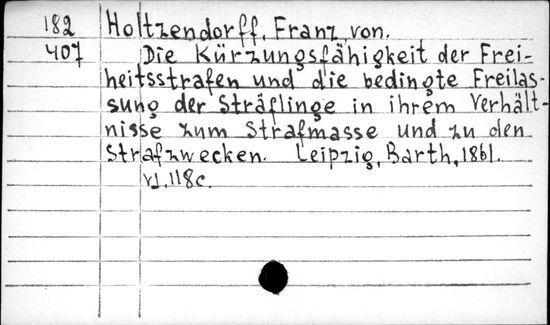 182 Holtzendorff, Franz von.
407 Die Kürzungsfähigkeit der Frei-
heitsstrafen und die bedingte Freilas-
sung der Sträflinge in ihrem Verhält-
nisse zum Strafmasse und zu den
Strafzwecken. Leipzig, Barth, 1861.
VI, 118c.